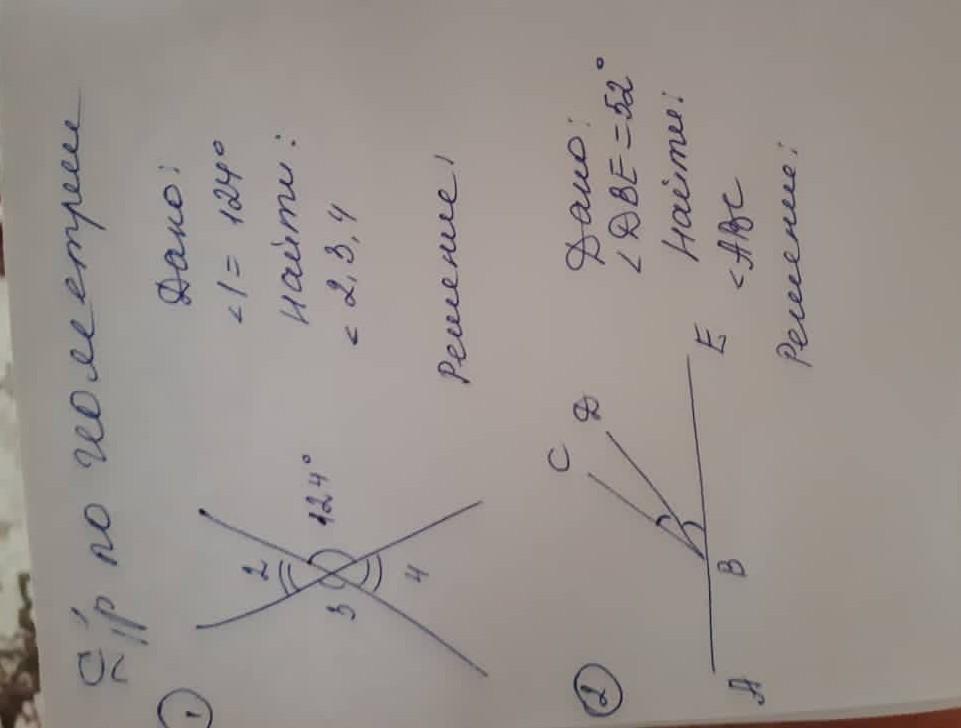 С/р по геометрии
①
Дано:
<1 = 124°
Найти:
< 2, 3, 4
Решение:
2
124°
3
4
②
Дано:
∠DBE = 52°
Найти:
<ABC
Решение:
C
D
E
B
A